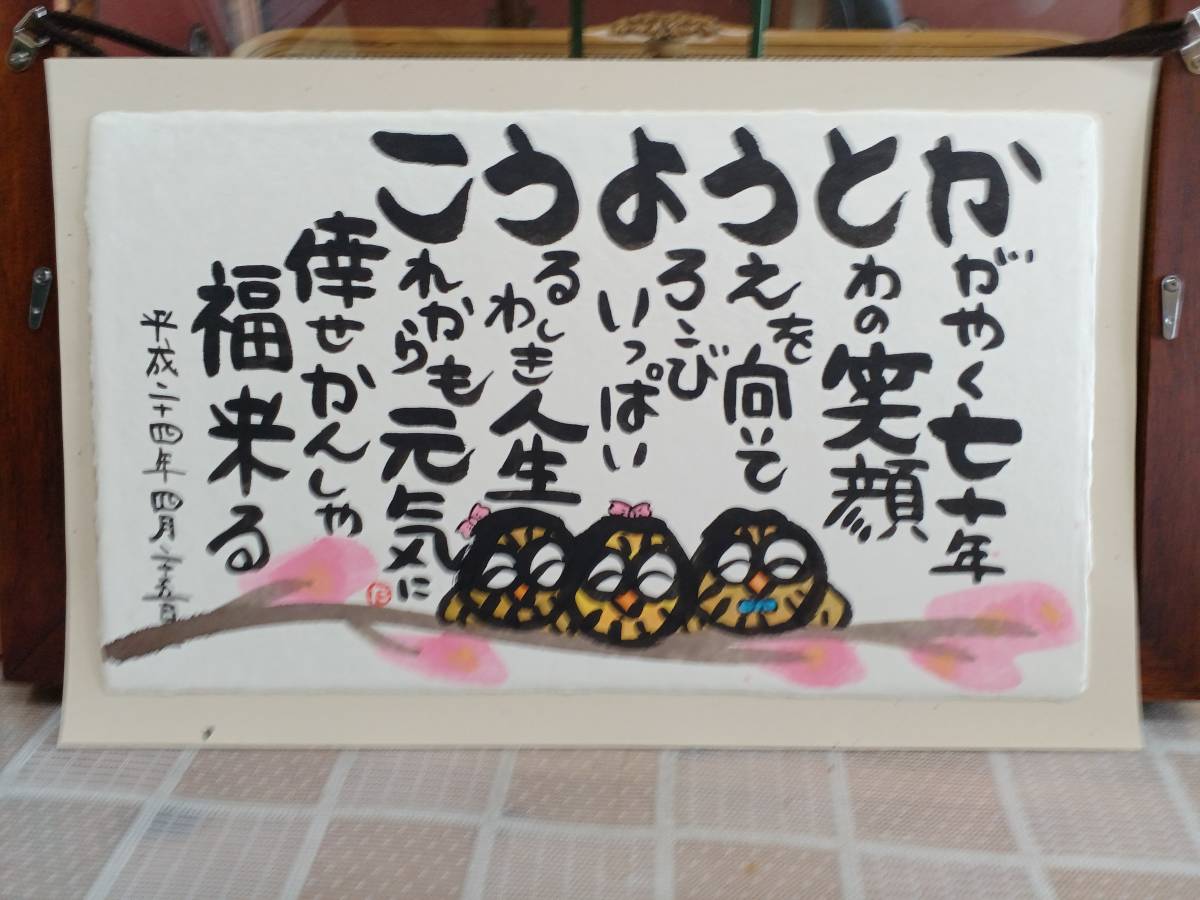 かがやく七十年
とわの笑顔
うえを向いて
よろこび
いっぱい
うるわしき人生
これからも元気に
倖せかんしゃ
福来る
平成二十四年四月二十五日